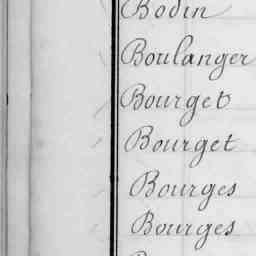 Bodin
Boulanger
Bourget
Bourget
Bourges
Bourges